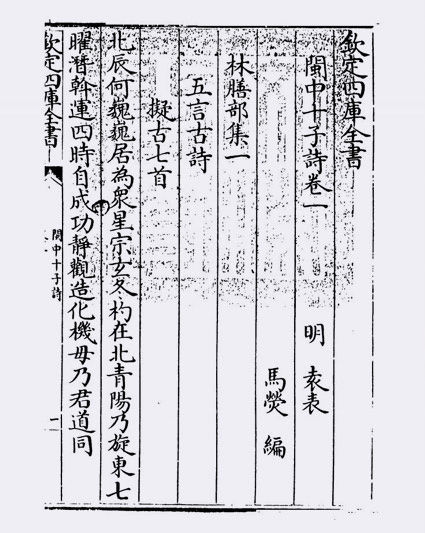 欽定四庫全書
閩中十子詩卷一
明 袁表
馬熒 編
林膳部集一
五言古詩
擬古七首
北辰何巍巍居為衆星宗玄冬杓在北青陽乃旋東七
曜潛斡運四時自成功靜觀造化機毋乃君道同
欽定四庫全書
閩中十子詩
一